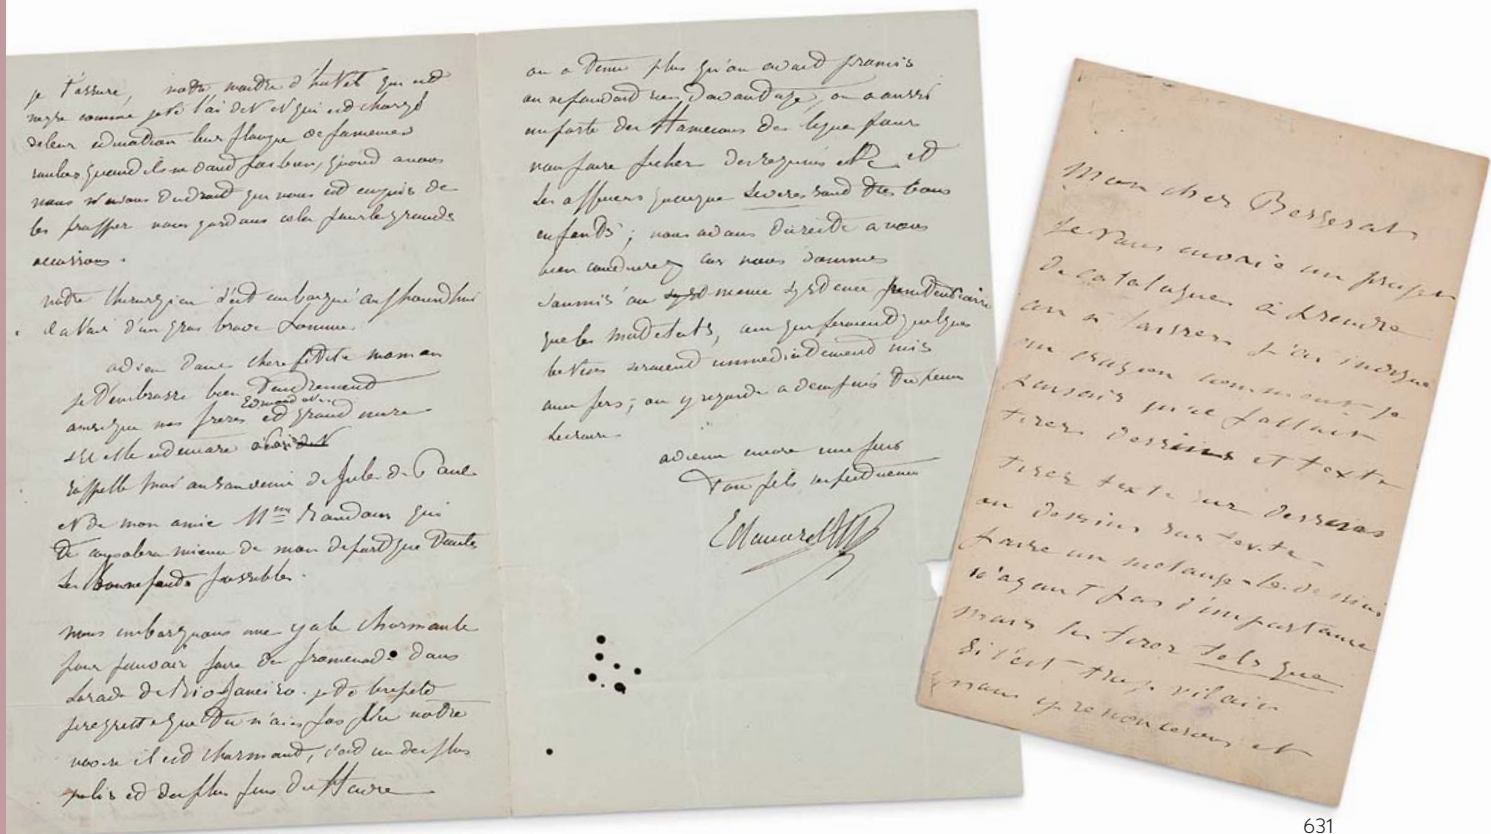 je t'assure, notre maitre d'hotel qui est
negre comme je te l'ai dit et qui est chargé
de leur education leur flanque de fameuses
roulées quand ils ne vont pas bien, quand a nous
nous n'avons du droit qui nous est acquis de
les frapper nous gardons cela pour les grandes
occasions.
notre chirurgien s'est embarqué aujourd'hui
il a l'air d'un gros brave homme
adieu donc chere petite maman
je t'embrasse bien tendrement
ainsi que mes freres Edmond et grand mere
si elle est encore à
rappelle moi au souvenir de Jule de
et de mon amie Mme qui
te consolera mieux de mon depart que toutes
les possibles.
nous embarquons une yole charmante
pour pouvoir faire des promenades dans
la rade de Rio Janeiro. je te le repete
je regrette que tu n'aies pas vu notre
navire il est charmant, c'est un des plus
jolis et des plus fins du Havre
on a tenu plus qu'on avait promis
on ne pouvait rien davantage, on a aussi
emporté des Hamecons des ligne pour
nous faire pecher des requins etc et
les officiers quoique severes sont des bons
enfants; nous avons interet a nous
bien conduire car nous sommes
soumis au meme systeme penitentiaire
que les matelots, ceux qui feraient quelques
betises seraient immediatement mis
aux fers; on y regarde a deux fois tu peux
le croire
adieu encore une fois
ton fils respectueux
Edouard M
Mon cher Bergerat
Je vous envoie un projet
de catalogue à prendre
ou à laisser j'ai indiqué
au crayon comment je
pensais qu'il fallait
tirer dessins et texte
tirer texte sur dessins
ou dessins sur texte
faire un melange - les dessins
n'ayant pas d'importance
mais les tirer tels que
Si c'est trop vilain
nous y renoncerons et
631